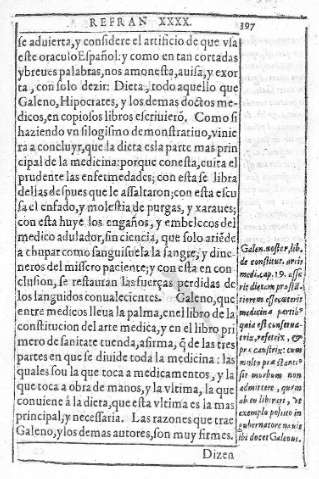 REFRAN XXXX. 397
se aduierta, y considere el artificio de que vsa
este oraculo Español: y como en tan cortadas
y breues palabras, nos amonesta, auisa, y exor
ta, con solo dezir: Dieta, todo aquello que
Galeno, Hipocrates, y los demas doctos me-
dicos, en copiosos libros escriuierõ. Como si
haziendo vn silogismo demonstratiuo, vinie
ra a concluyr, que la dieta es la parte mas prin
cipal de la medicina: porque con esta, euita el
prudente las enfermedades; con esta se libra
dellas despues que le assaltaron; con esta escu
sa el enfado, y molestia de purgas, y xaraues;
con esta huye los engaños, y embelecos del
medico adulador, sin ciencia, que solo atiẽde
a chupar como sanguisuela la sangre, y dine
neros del missero paciente; y con esta en con
clusion, se restauran las fuerças perdidas de
los languidos conualecientes. Galeno, que
entre medicos lleua la palma, en el libro de la
constitucion del arte medica, y en el libro pri
mero de sanitate tuenda, afirma, q̃ de las tres
partes en que se diuide toda la medicina: las
quales son la que toca a medicamentos, y la
que toca a obra de manos, y la vltima, la que
conuiene à la dieta, que esta vltima es la mas
principal, y necessaria. Las razones que trae
Galeno, y los demas autores, son muy firmes.
Dizen
Galen. noster, lib.
de constitut. artis
medi. cap. 19. asse
rit dietam præsta-
tiorem esse cæteris
medicinæ partib9
quia est conserua-
trix, refetrix, &
præcanstrix: cum
multo præstanti9
sit morbum non
admittere, quem
ab eo liberari, vt
exemplo posito in
gubernatore nauis
ibi docet Galenus.